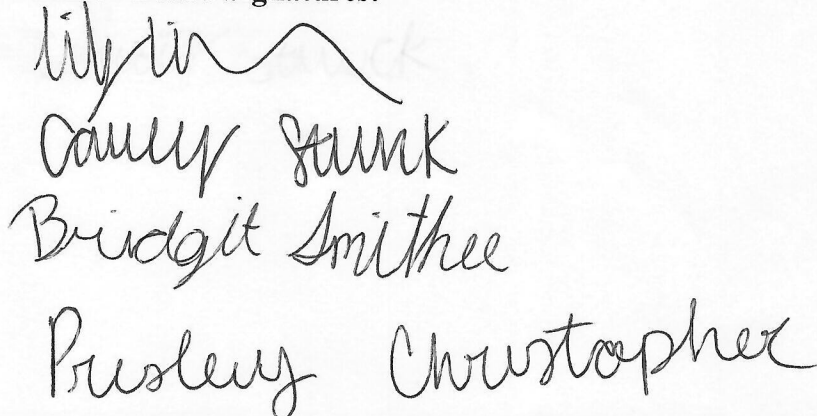 lily lin
Stunk
Bridgit Smithee
Presley Christopher